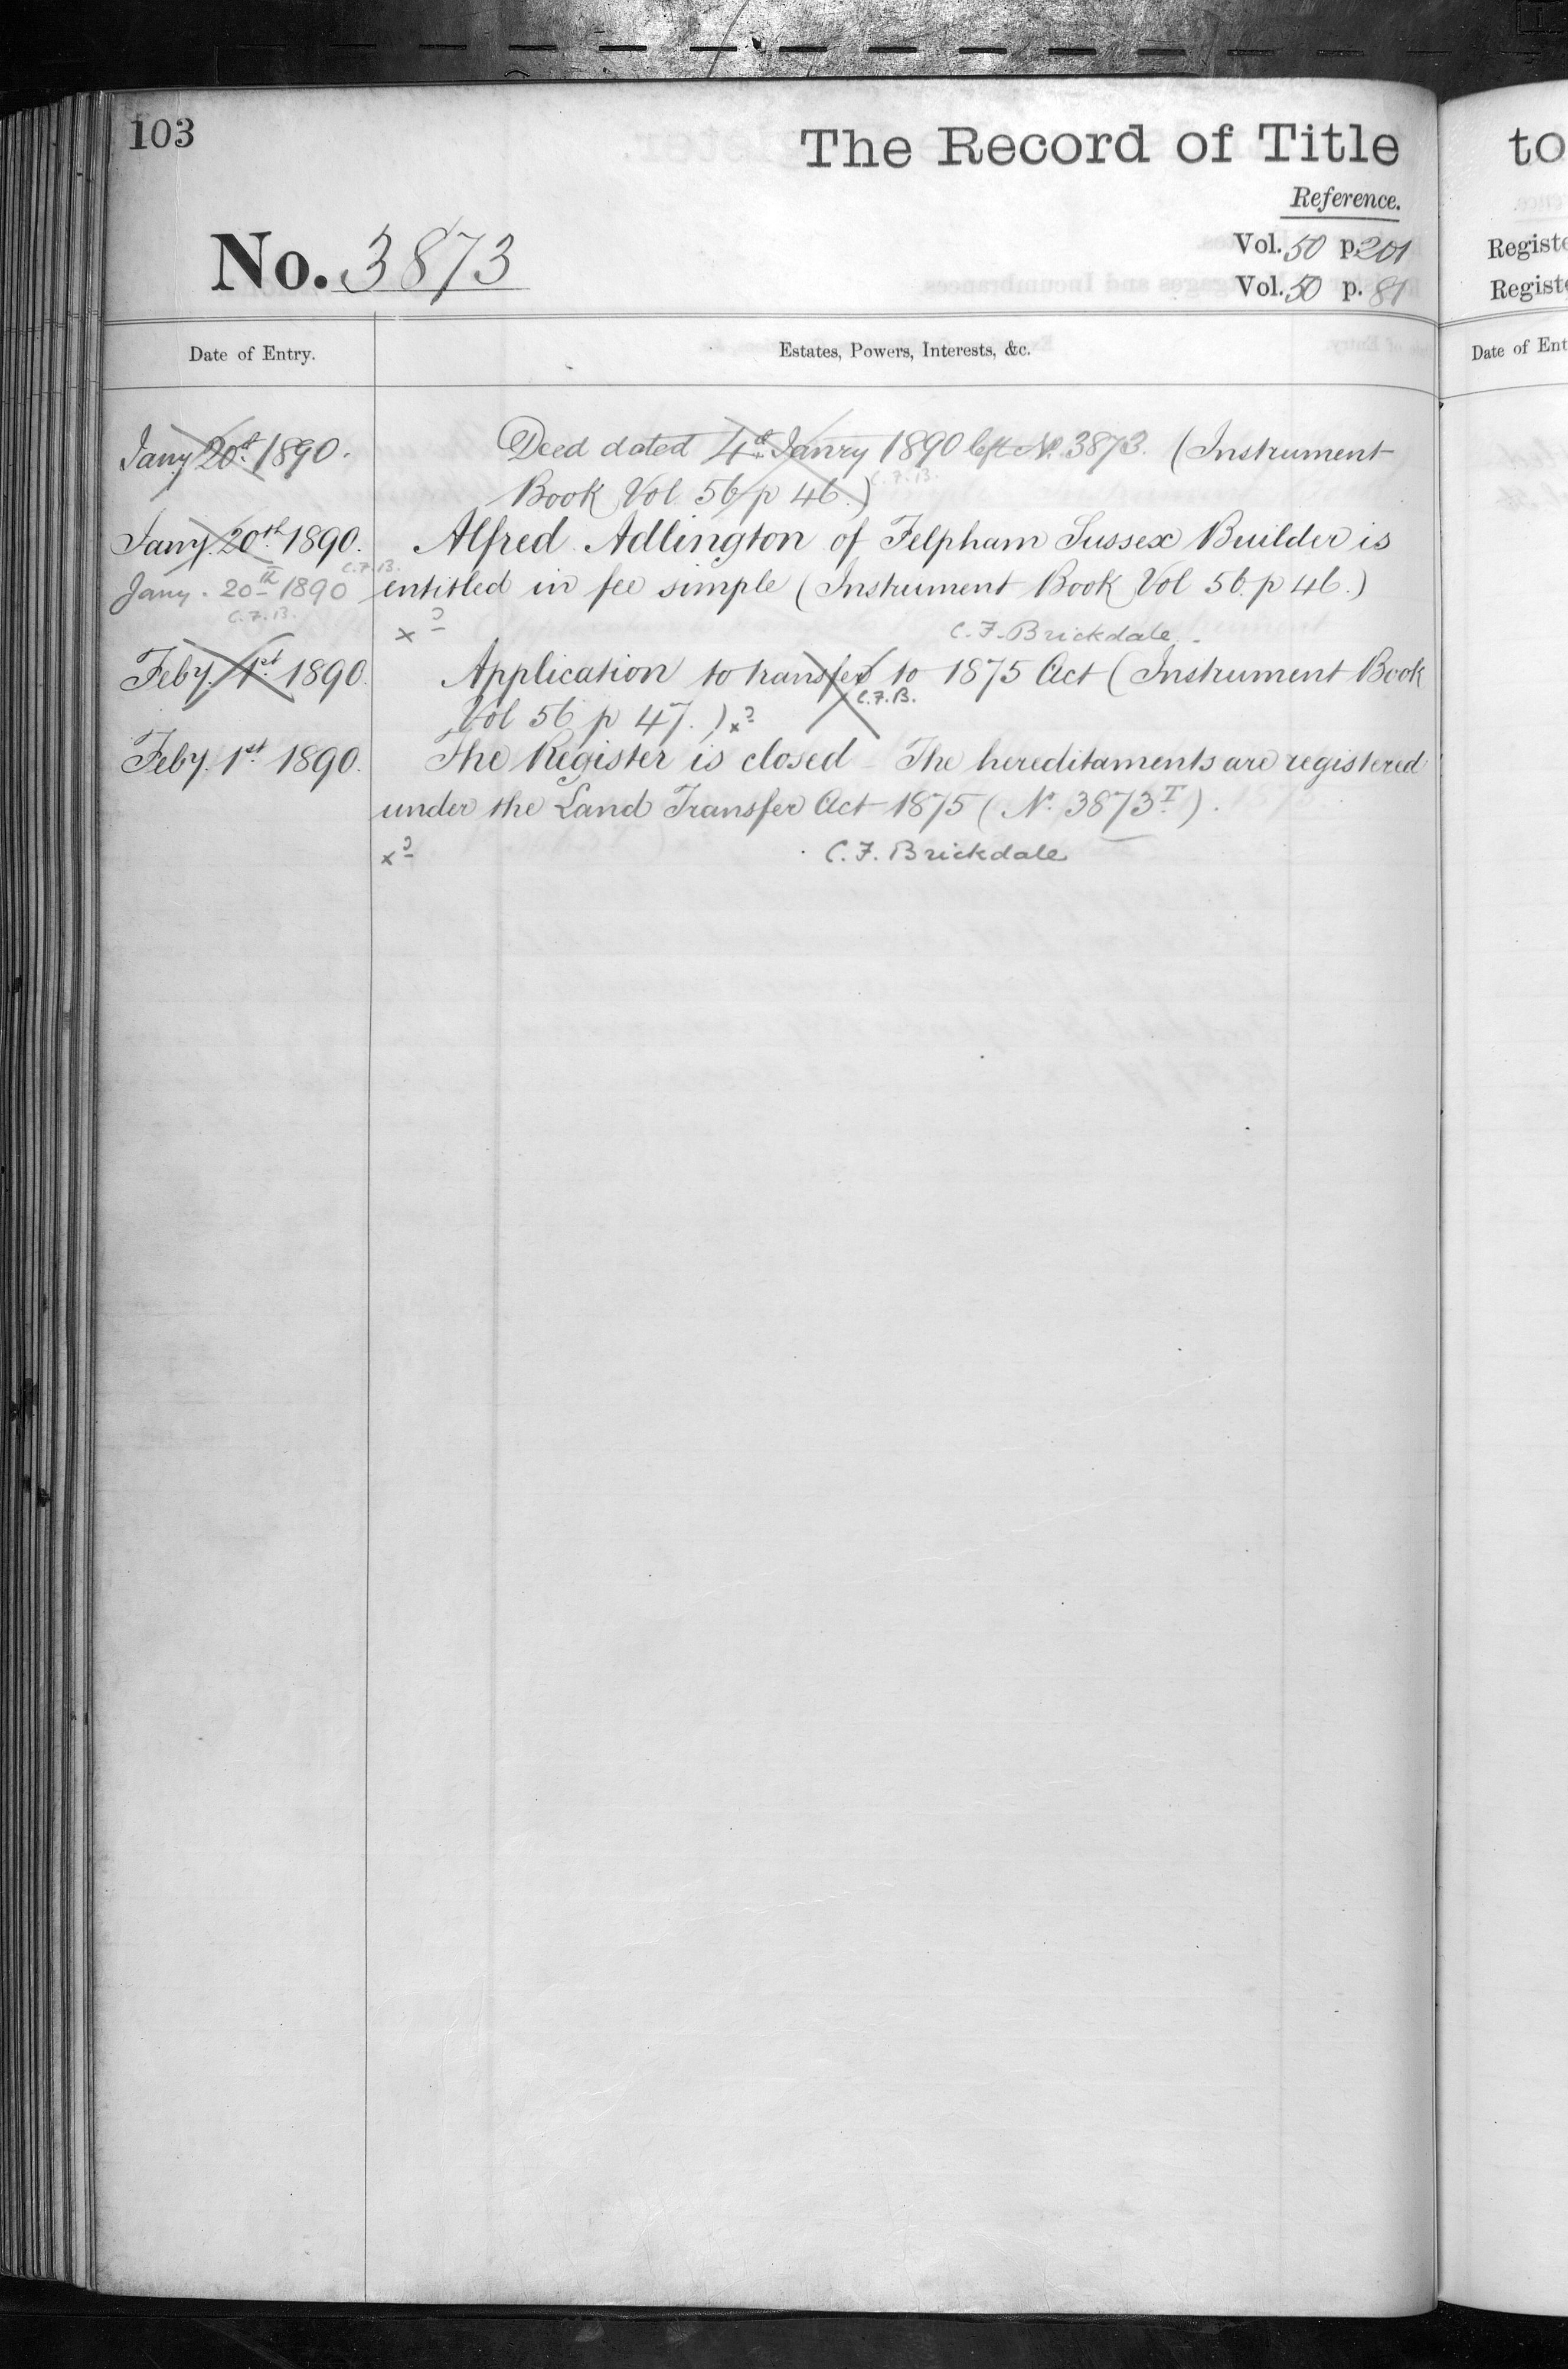 103
The Record of Title
Reference.
No. 3873
Vol. 50 p. 201
Vol. 50 p. 81
Date of Entry.
Estates, Powers, Interests, &c.
Jany 20th 1890.
Deed dated 4th Janry 1890 left No. 3873. (Instrument
C.F.B.
Book Vol 56 p 46.)
Jany. 20th 1890.
Alfred Adlington of Felpham Sussex Builder is
C.F.B.
Jany. 20th 1890
entitled in fee simple (Instrument Book Vol 56. p 46.)
C.F.B.
C. F. Brickdale.
Feby. 1st 1890.
Application to transfer to 1875 Act (Instrument Book
C.F.B.
Vol 56 p 47.)
Feby. 1st 1890.
The Register is closed The hereditaments are registered
under the Land Transfer Act 1875 (No. 3873T).
C. F. Brickdale
to
Registe
Registe
Date of Ent